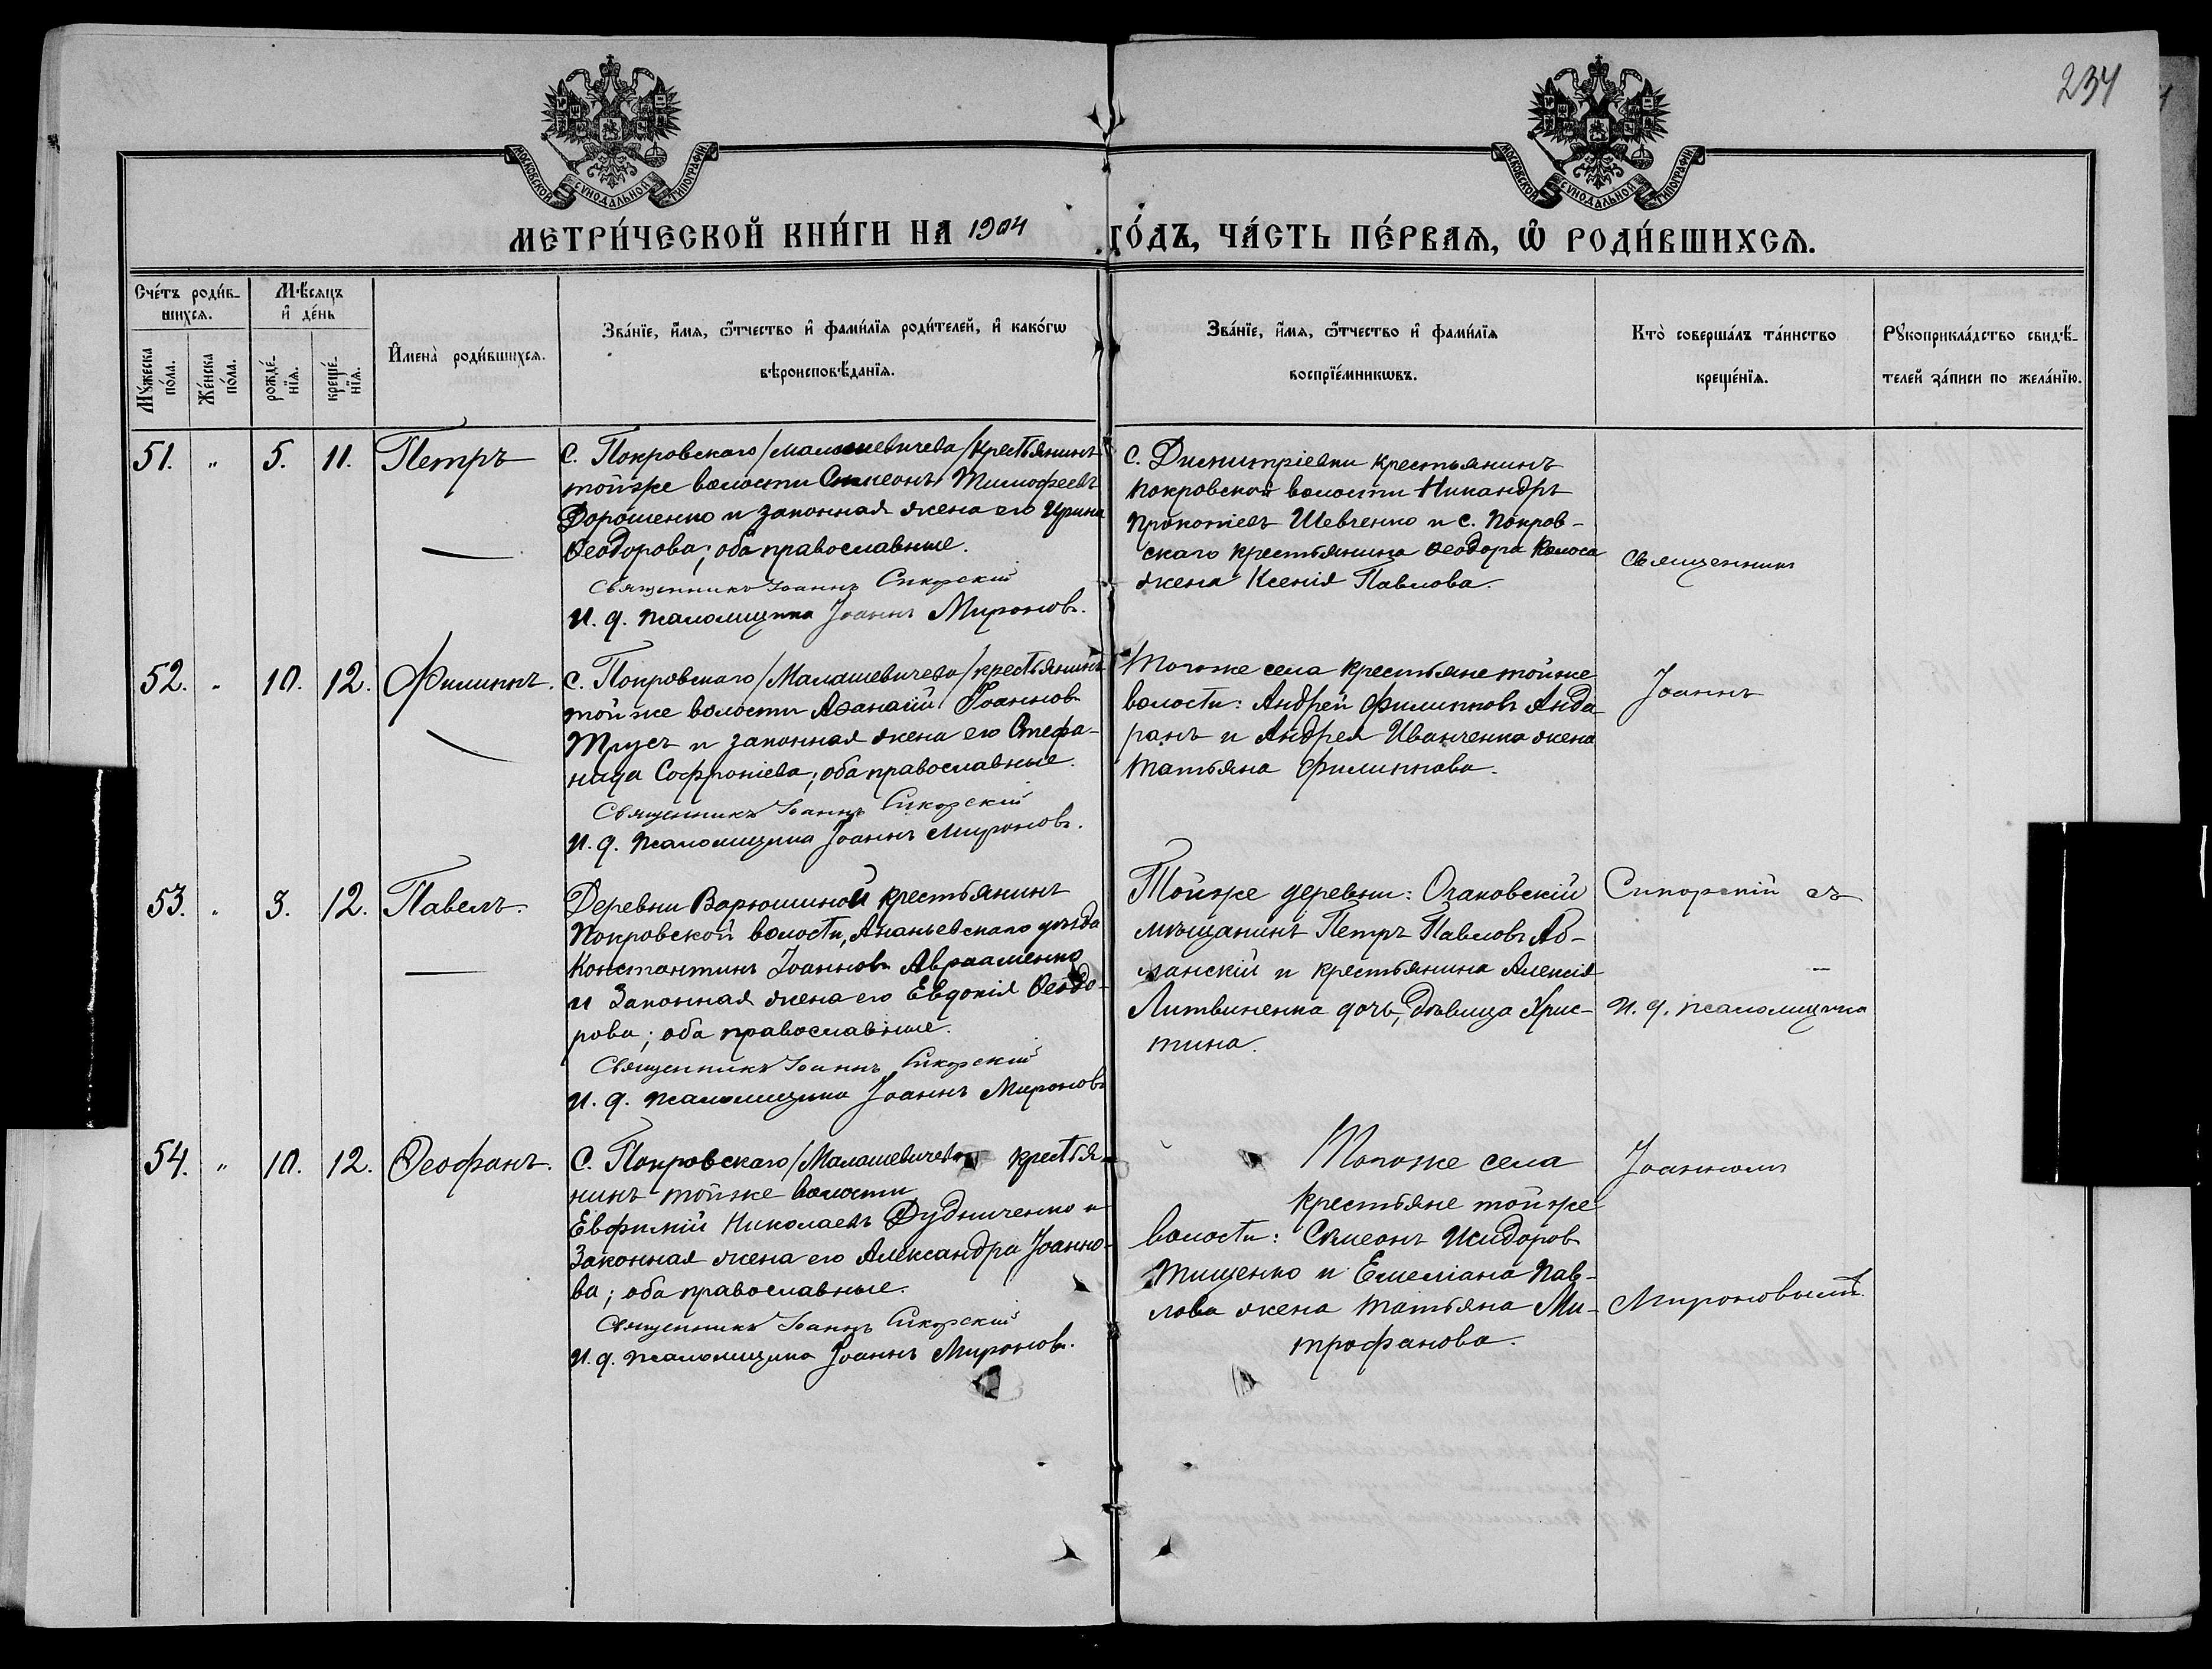 234
МОСКОВСКОЙ СУНОДАЛЬНОЙ ТИПОГРАФІИ
МОСКОВСКОЙ СУНОДАЛЬНОЙ ТИПОГРАФІИ
МЕТРИ́ЧЕСКОЙ КНИ́ГИ НА 1904 ГО́ДЪ, ЧА́СТЬ ПЕ́РВАѦ, Ѽ РОДИ́ВШИХСѦ.
Сче́тъ роди́в-
шихсѧ.
Мꙋжеска по́ла.
Же́нска по́ла.
Мѣ́сяцъ
и҆ де́нь
рожде́-
нїѧ.
креще́-
нїѧ.
И҆мена̀ роди́вшихсѧ.
Зва́нїе, и҆́мѧ, ѻ҆́тчество и҆ фами́лїѧ роди́телей, и҆ како́гѡ
вѣроисповѣ́данїѧ.
Зва́нїе, и҆́мѧ, ѻ҆́тчество и҆ фами́лїѧ
воспрїе́мникѡвъ.
Кто̀ соверша́лъ та́инство
креще́нїѧ.
Рꙋкоприкла́дство свидѣ́-
телей за́писи по жела́нїю.
51. " 5. 11. Петръ
С. Покровскаго /Малашевичева/ крестьянинъ
тойже волости Симеонъ Тимофеевъ
Дорошенко и законная жена его Ирина
Ѳеодорова; оба православные.
Священникъ Іоаннъ Сикорскій
И. д. псаломщика Іоаннъ Мироновъ.
С. Димитріевки крестьянинъ
Покровской волости Никандръ
Прокопіевъ Шевченко и с. Покров-
скаго крестьянина Ѳеодора Колоса
жена Ксенія Павлова.
Священникъ
52. " 10. 12. Филиппъ.
С. Покровскаго /Малашевичева/ крестьянинъ
той же волости Аѳанасій Іоанновъ
Трусъ и законная жена его Стефа-
нида Софроніева; оба православные.
Священникъ Іоаннъ Сикорскій
И. д. псаломщика Іоаннъ Мироновъ.
Тогоже села крестьяне тойже
волости: Андрей Филипповъ Анда-
ранъ и Андрея Иванченка жена
Татьяна Филиппова.
Іоаннъ
53. " 3. 12. Павелъ.
Деревни Варюшиной крестьянинъ
Покровской волости, Ананьевскаго уѣзда
Константинъ Іоанновъ Авраменко
и законная жена его Евдокія Ѳеодо-
рова; оба православные.
Священникъ Іоаннъ Сикорскій
И. д. псаломщика Іоаннъ Мироновъ
Тойже деревни: Очаковскій
мѣщанинъ Петръ Павловъ
и крестьянина Алексія
Литвиненка дочь, дѣвица Хрис-
тина.
Сикорскій съ
и. д. псаломщика
54. " 10. 12. Ѳеофанъ.
С. Покровскаго /Малашевичева крестья-
нинъ тойже волости
Евфимій Николаевъ Дудниченко и
законная жена его Александра Іоанно-
ва; оба православные.
Священникъ Іоаннъ Сикорскій
И. д. псаломщика Іоаннъ Мироновъ.
Тогоже села
крестьяне тойже
волости: Симеонъ Исидоровъ
Тищенко и Емеліана Пав-
лова жена Татьяна Ми-
трофанова.
Іоанномъ
Мироновымъ.